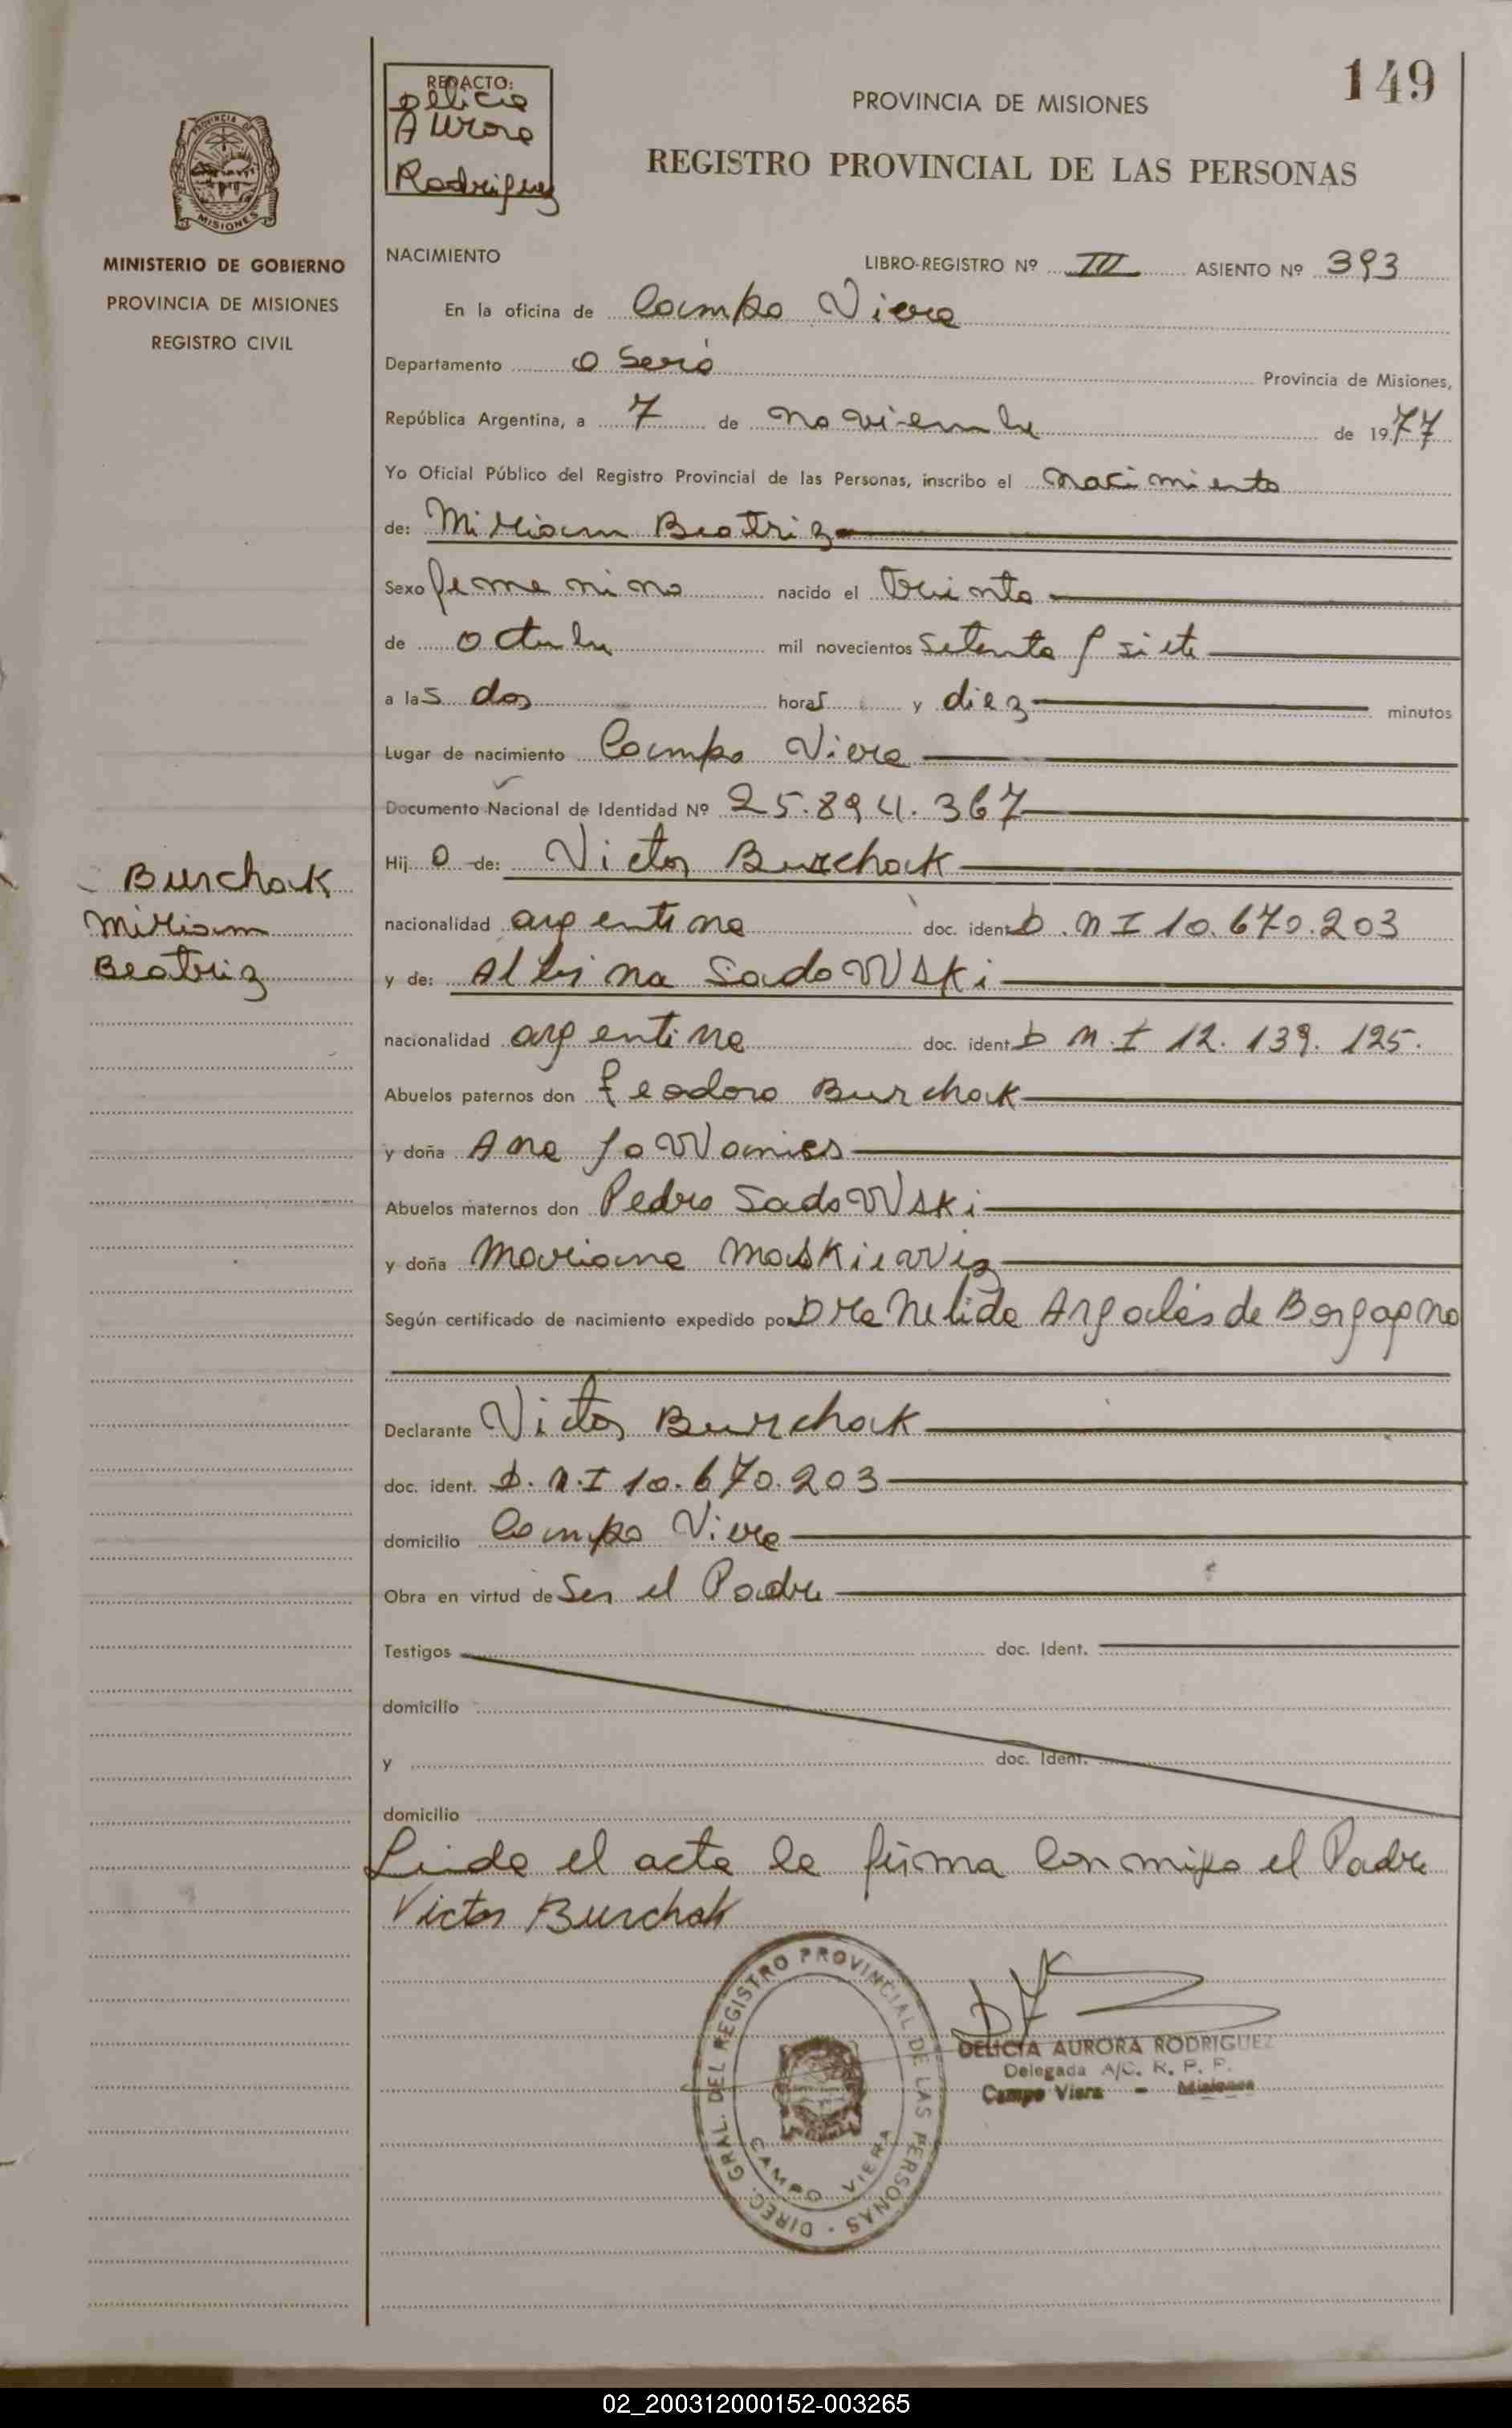 149
REDACTO:
Delicia
Aurora
Rodriguez
PROVINCIA DE MISIONES
REGISTRO PROVINCIAL DE LAS PERSONAS
PROVINCIA DE
MISIONES
MINISTERIO DE GOBIERNO
PROVINCIA DE MISIONES
REGISTRO CIVIL
NACIMIENTO
LIBRO-REGISTRO Nº III ASIENTO Nº 393
En la oficina de Campo Viera
Departamento Oberá Provincia de Misiones,
República Argentina, a 7 de noviembre de 1977
Yo Oficial Público del Registro Provincial de las Personas, inscribo el nacimiento
de: Miriam Beatriz
Sexo femenino nacido el Treinta
de octubre mil novecientos setenta y siete
a las dos horas y diez minutos
Lugar de nacimiento Campo Viera
Documento Nacional de Identidad Nº 25.894.367
Hijo de: Victor Burchak
Burchak
Miriam
Beatriz
nacionalidad argentina doc. ident D.N I 10.670.203
y de: Albina Sadowski
nacionalidad argentina doc. ident D N.I 12.139.125.
Abuelos paternos don Teodoro Burchak
y doña Ana
Abuelos maternos don Pedro Sadowski
y doña Mariana Maskiewiz
Según certificado de nacimiento expedido por Dra Nelida de
Declarante Victor Burchak
doc. ident. D.N.I 10.670.203
domicilio Campo Viera
Obra en virtud de Ser el Padre
Testigos doc. Ident.
domicilio
y doc. Ident.
domicilio
Leida el acta la firma conmigo el Padre
Victor Burchak
DIREC. GRAL. DEL REGISTRO PROVINCIAL DE LAS PERSONAS
CAMPO VIERA
DELICIA AURORA RODRIGUEZ
Delegada A/C. R. P. P.
Campo Viera - Misiones
02_200312000152-003265